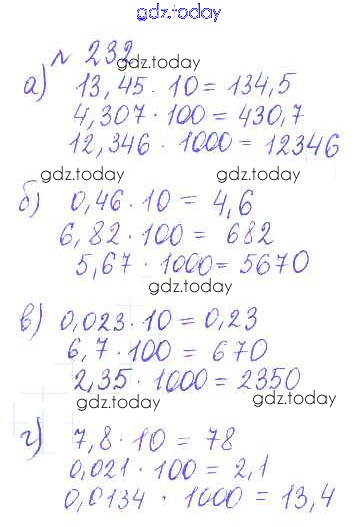 gdz.today
№ 232
gdz.today
а) 13,45 · 10 = 134,5
4,307 · 100 = 430,7
12,346 · 1000 = 12346
gdz.today gdz.today
б) 0,46 · 10 = 4,6
6,82 · 100 = 682
5,67 · 1000 = 5670
gdz.today
в) 0,023 · 10 = 0,23
6,7 · 100 = 670
2,35 · 1000 = 2350
gdz.today gdz.today
г) 7,8 · 10 = 78
0,021 · 100 = 2,1
0,0134 · 1000 = 13,4
gdz.today